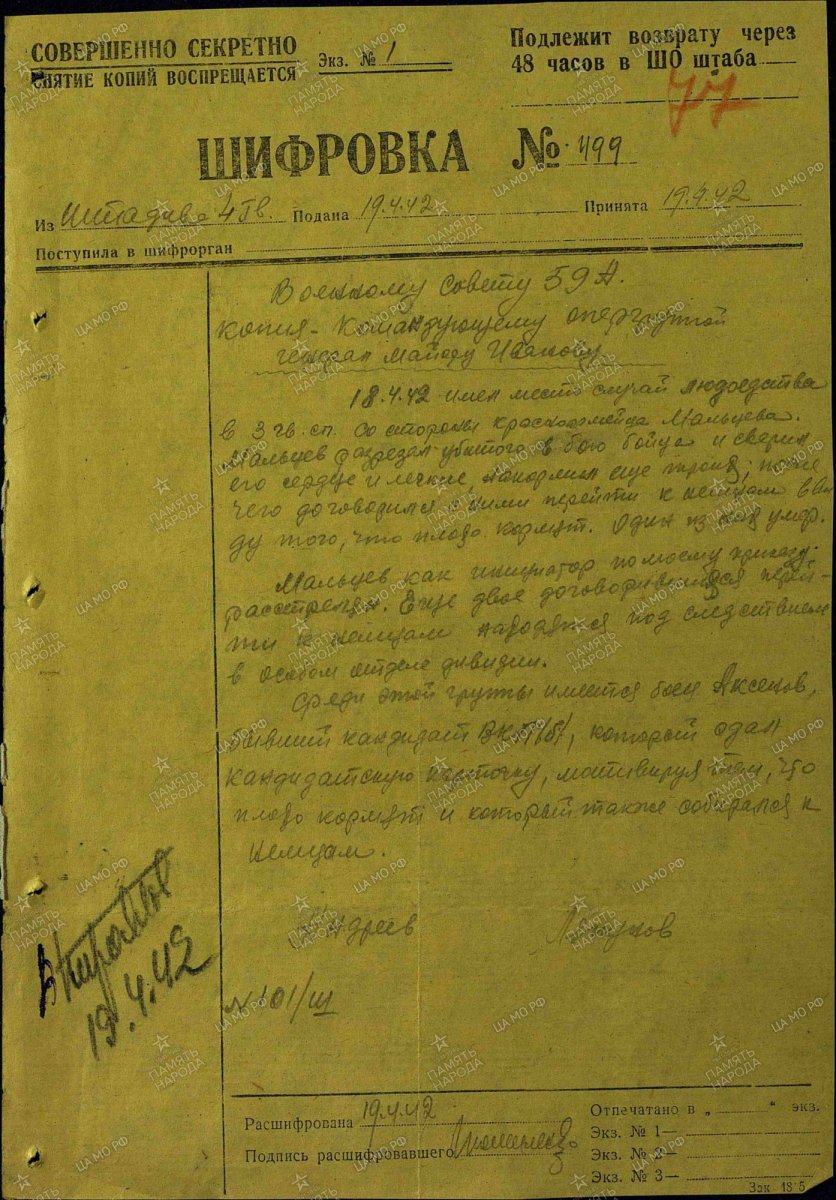 СОВЕРШЕННО СЕКРЕТНО
СНЯТИЕ КОПИЙ ВОСПРЕЩАЕТСЯ
Экз. № 1
Подлежит возврату через
48 часов в ШО штаба
77
ШИФРОВКА № 499
Из Штадива 4 гв. Подана 19.4.42 Принята 19.4.42
Поступила в шифрорган
Военному Совету 59 А.
копия - Командующему опергруппой
генерал майору Иванову
18.4.42 имел место случай людоедства
в 3 гв. сп. со стороны красноармейца Мальцева.
Мальцев разрезал убитого в бою бойца и сварил
его сердце и легкие, накормил еще троих, после
чего договорился с ними перейти к немцам вви-
ду того, что плохо кормят. Один из них умер.
Мальцев как инициатор по моему приказу
расстрелян. Еще двое договорившихся перей-
ти к немцам находятся под следствием
в особом отделе дивизии.
Среди этой группы имеется боец Аксенов,
бывший кандидат ВКП/б/, который сдал
кандидатскую карточку, мотивируя тем, что
плохо кормят и который также собирался к
немцам.
Андреев
№ 101/ш
19.4.42
Расшифрована 19.4.42
Подпись расшифровавшего
Отпечатано в „ “ экз.
Экз. № 1—
Экз. № 2—
Экз. № 3—
Зак. 1815
ПАМЯТЬ НАРОДА
ЦА МО РФ